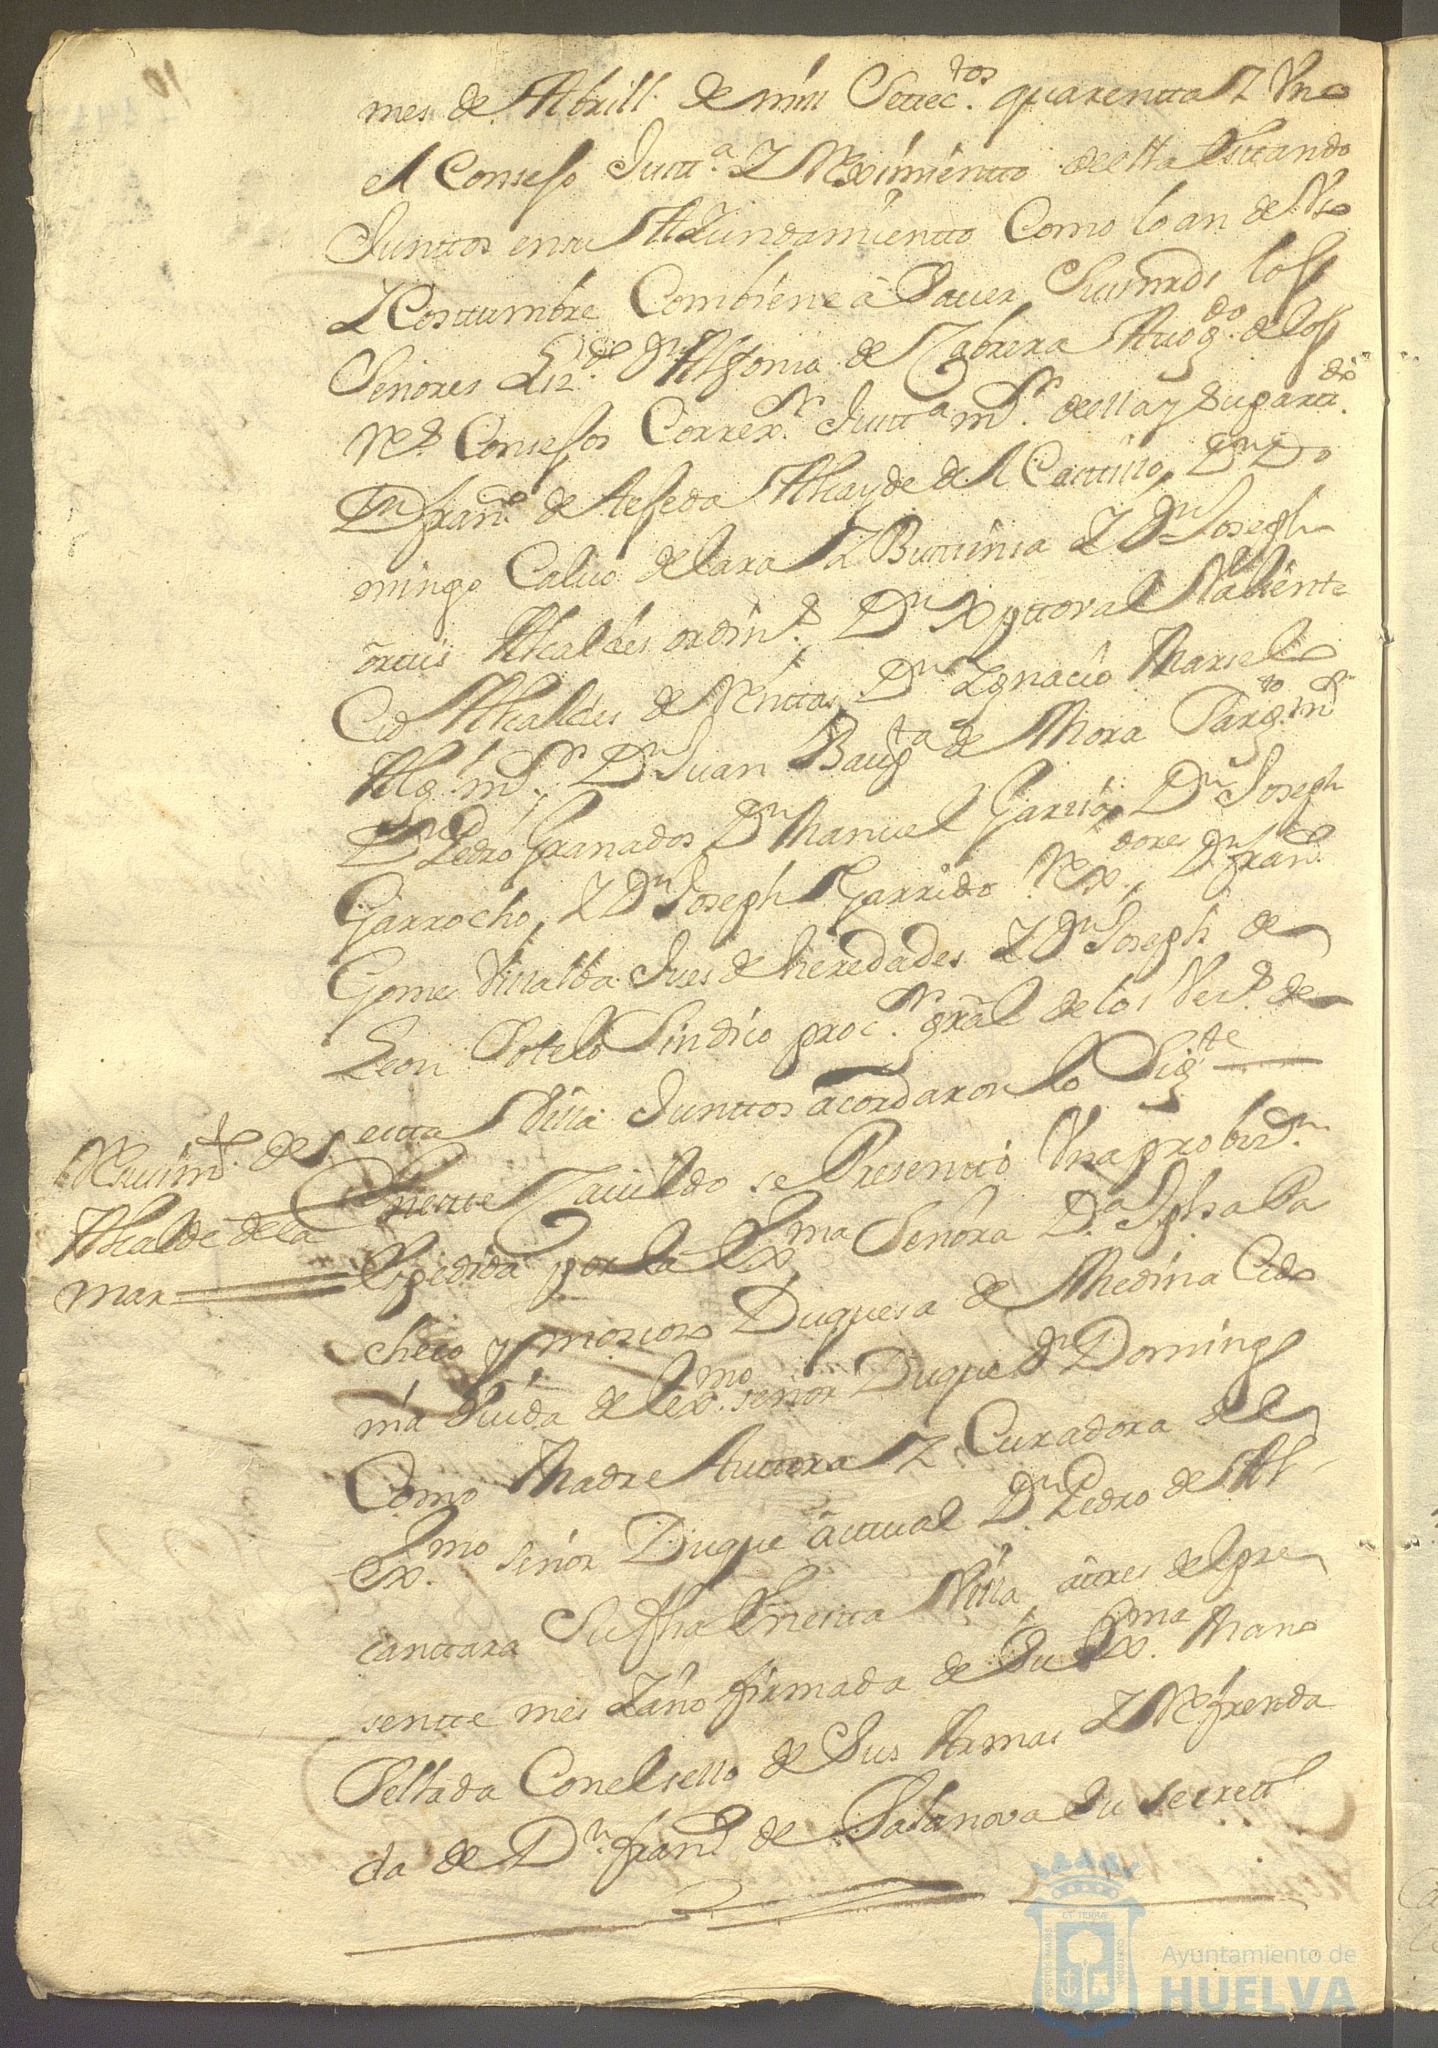 mes de Abrill de mill Settec.tos quarentta Z Uno
el Consejo Justt.a Z Reximientto della esttando
Junttos en su AiZundamientto Como lo an de Uso
Z Costtumbre Combiene à Saver, Sus mrds los
Señores Liz.do Dn Alfonso de Cabrera Auog.do de los
R.s Consejos Correx.r Justt.a m.r della y su partt.do
Dn fran.co de Aefeda Alcayde del Casttillo, Dn Do
mingo Caluo de lara Z Buttinsa Z Dn Joseph
orttis Alcaldes ordin.s, Dn Xpttoval Valiente
Cid Alcaldes de Renttas, Dn Ignacio Marselo
Alg.l m.r, Dn Juan Baup.ta de Mora Sarg.to m.r
Dn Pedro Granados, Dn Manuel Garzia, Dn Joseph
Garrocho, Z Dn Joseph Garrido Rex.dores, Dn fran.co
Gomes Villalba Jues de heredades, Z Dn Joseph de
Leon Sotelo Sindico proc.r gral de los Vez.s de
estta Villa Junttos acordaron lo Sig.te
Reciuim.to de
Alcalde de la
mar
Enestte Cauildo se Presenttó Una probiz.n
Expedida por la Ex.ma Señora D.a Jpha Pa
checo y moscoso Duquesa de Medina Cido
nia Viuda del ex.mo señor Duque Dn Domingo
Como Madre ttuttora Z Curadora del
Ex.mo señor Duque acttual Dn Pedro de Al
canttara Su fha Enestta Villa, a tres del pre
sentte mes Z año firmada de Su Ex.ma Mano
Sellada Conel sello de Sus Armas Z Refrenda
da de Dn fran.co de Casanova Su secrett.o
Ayuntamiento de
HUELVA